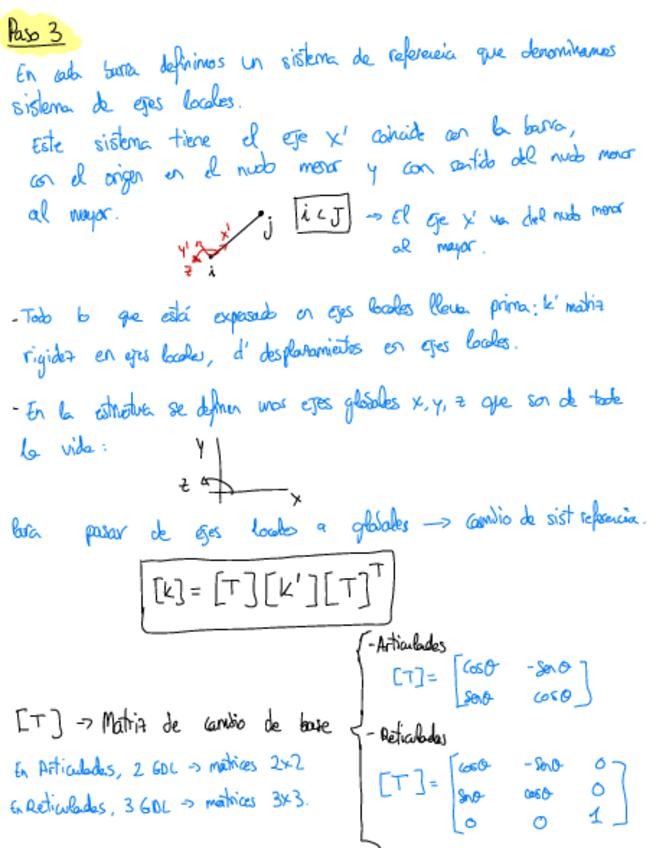 Paso 3
En cada barra definimos un sistema de referencia que denominamos
sistema de ejes locales.
Este sistema tiene el eje x' coincide con la barra,
con el origen en el nudo menor y con sentido del nudo menor
al mayor.
i < J → El eje x' va del nudo menor
al mayor.
x'
y'
z
i
j
- Todo lo que está expresado en ejes locales lleva prima: k' matriz
rigidez en ejes locales, d' desplazamientos en ejes locales.
- En la estructura se definen unos ejes globales x, y, z que son de toda
la vida:
Y
z
x
Para pasar de ejes locales a globales → cambio de sist referencia.
[K] = [T][K'][T]^T
[T] → Matriz de cambio de base
En Articuladas, 2 GDL → matrices 2x2
En Reticuladas, 3 GDL → matrices 3x3.
- Articuladas
[T] = [cosθ -senθ
senθ cosθ]
- Reticuladas
[T] = [cosθ -senθ 0
senθ cosθ 0
0 0 1]